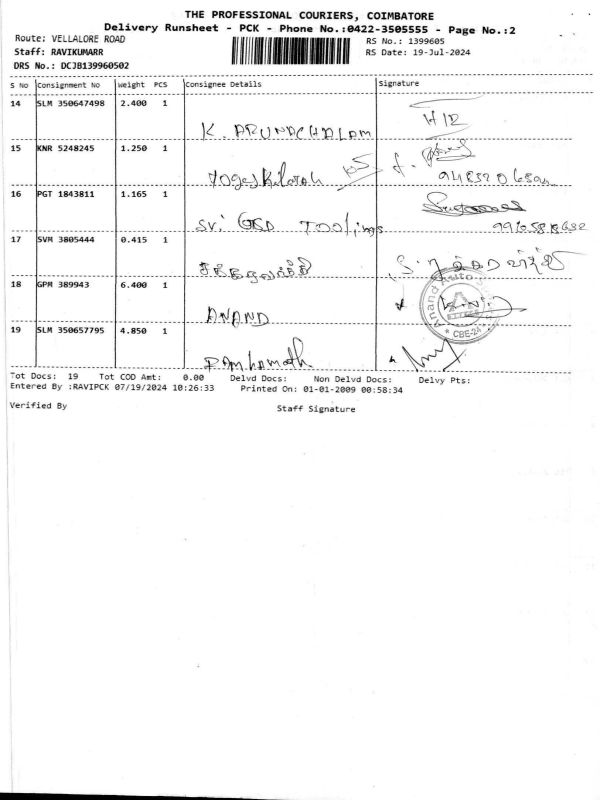 THE PROFESSIONAL COURIERS, COIMBATORE
Delivery Runsheet - PCK - Phone No.:0422-3505555 - Page No.:2
Route: VELLALORE ROAD
RS No.: 1399605
Staff: RAVIKUMARR
RS Date: 19-Jul-2024
DRS No.: DCJB139960502
S No Consignment No Weight PCS Consignee Details Signature
14 SLM 350647498 2.400 1
K. ARUNACHALAM
15 KNR 5248245 1.250 1
16 PGT 1843811 1.165 1
Sri GKD TOOlings
17 SVM 3805444 0.415 1
18 GPM 389943 6.400 1
ANAND
Anand Auto
CBE-24
19 SLM 350657795 4.850 1
Tot Docs: 19 Tot COD Amt: 0.00 Delvd Docs: Non Delvd Docs: Delvy Pts:
Entered By :RAVIPCK 07/19/2024 10:26:33 Printed On: 01-01-2009 00:58:34
Verified By Staff Signature